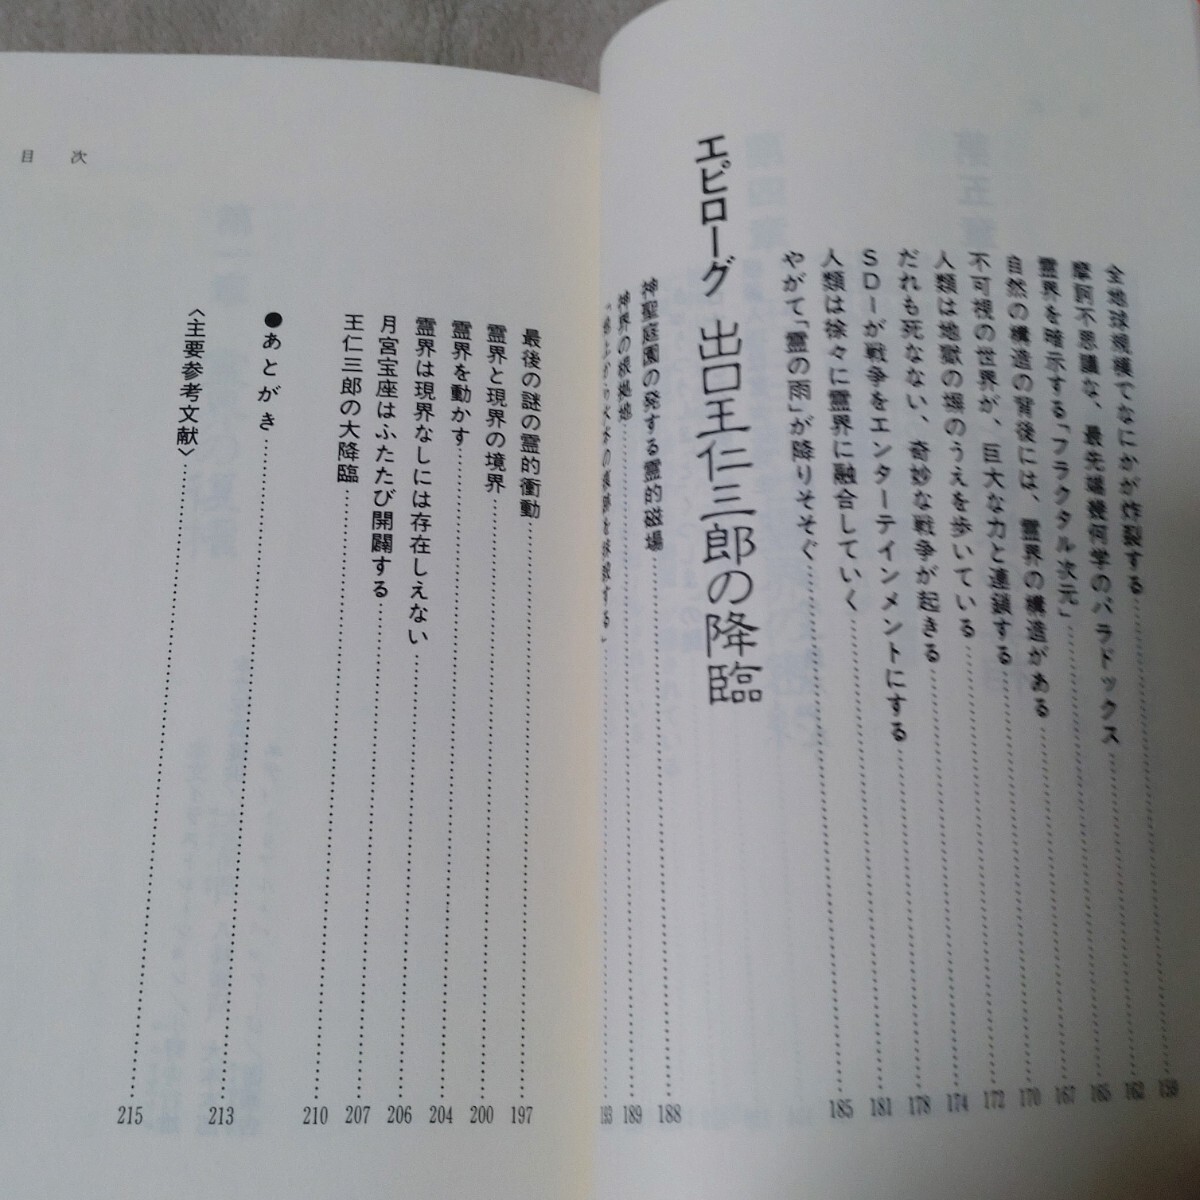 全地球規模でなにかが炸裂する 159
摩訶不思議な、最先端幾何学のパラドックス 162
霊界を暗示する「フラクタル次元」 165
自然の構造の背後には、霊界の構造がある 167
不可視の世界が、巨大な力と連鎖する 170
人類は地獄の塀のうえを歩いている 172
だれも死なない、奇妙な戦争が起きる 174
SDIが戦争をエンターテインメントにする 178
人類は徐々に霊界に融合していく 181
やがて「霊の雨」が降りそそぐ 185
エピローグ 出口王仁三郎の降臨
神聖庭園の発する霊的磁場 188
神界の根拠地 189
「地上から大本の痕跡を抹殺する」 193
最後の謎の霊的衝動 197
霊界と現界の境界 200
霊界を動かす 204
霊界は現界なしには存在しえない 206
月宮宝座はふたたび開闢する 207
王仁三郎の大降臨 210
●あとがき 213
〈主要参考文献〉 215
目次